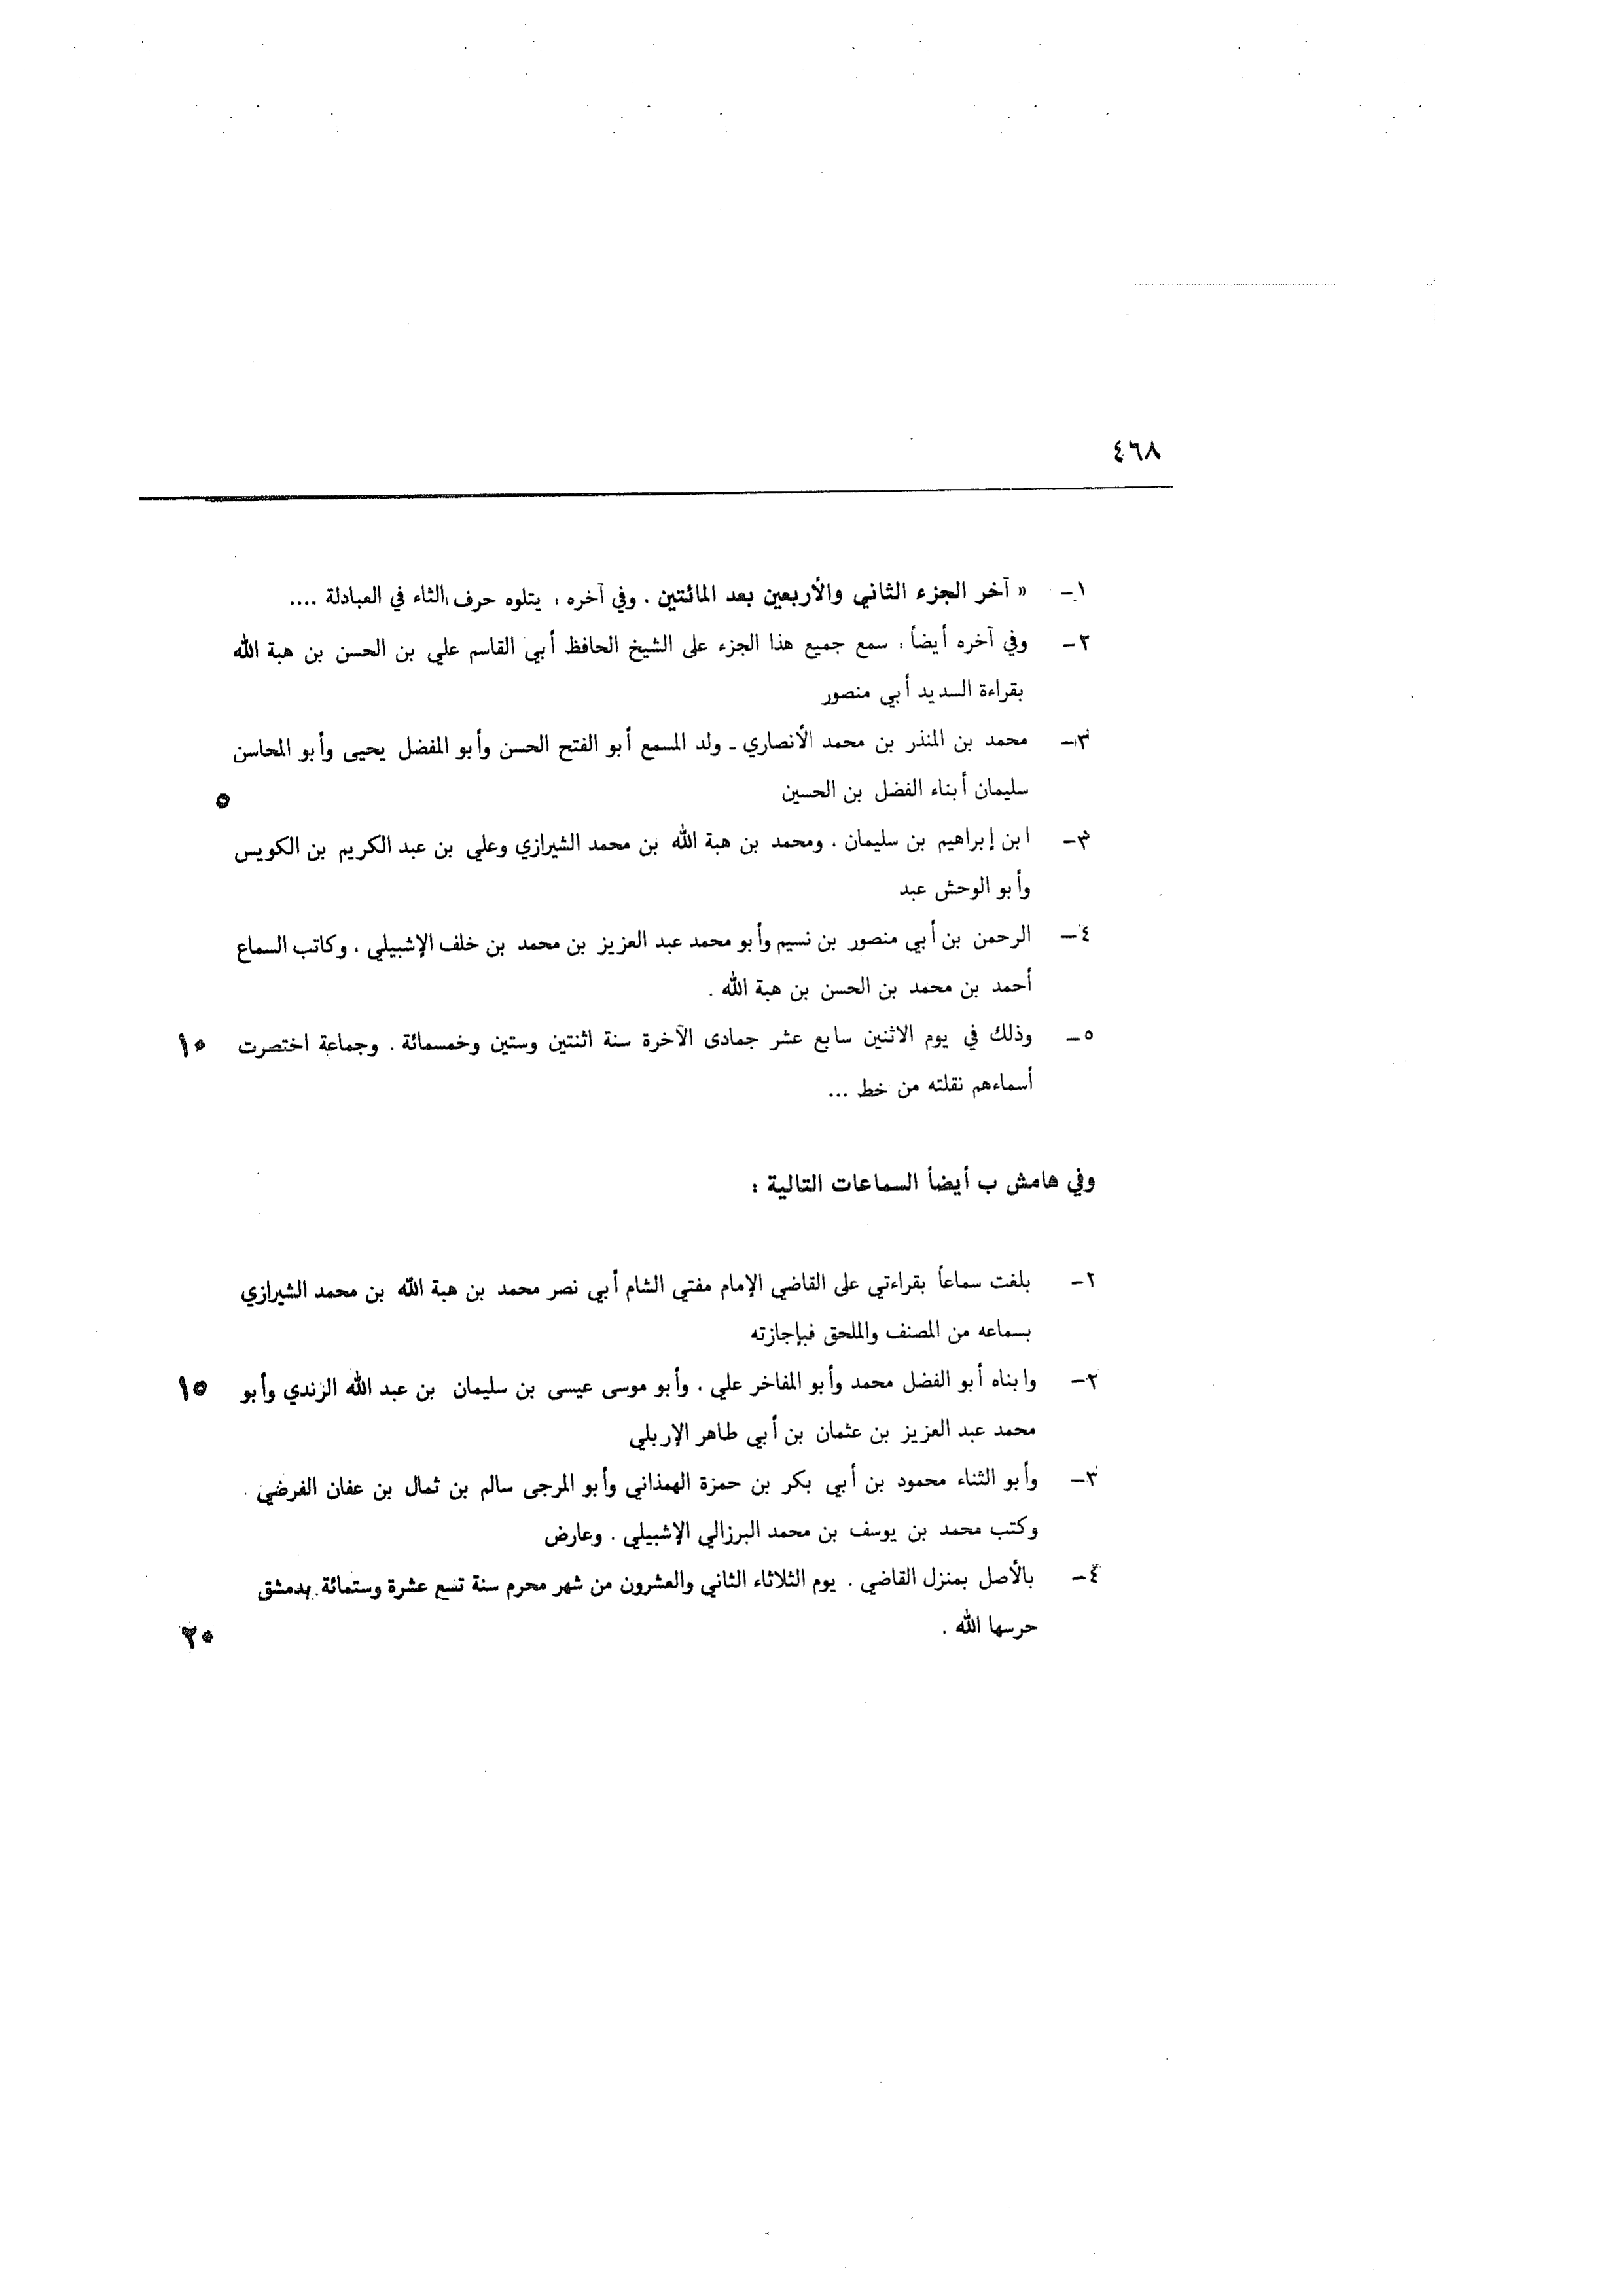 ٤٦٨
١ـ « آخر الجزء الثاني والأربعين بعد المائتين . وفي آخره : يتلوه حرف الثاء في العبادلة ....
٢ـ وفي آخره أيضاً : سمع جميع هذا الجزء على الشيخ الحافظ أبي القاسم علي بن الحسن بن هبة الله
بقراءة السديد أبي منصور
٣ـ محمد بن المنذر بن محمد الأنصاري ـ ولد المسمع أبو الفتح الحسن وأبو المفضل يحيى وأبو المحاسن
سليمان أبناء الفضل بن الحسين
٥
٣ـ ابن إبراهيم بن سليمان . ومحمد بن هبة الله بن محمد الشيرازي وعلي بن عبد الكريم بن الكويس
وأبو الوحش عبد
٤ـ الرحمن بن أبي منصور بن نسيم وأبو محمد عبد العزيز بن محمد بن خلف الإشبيلي . وكاتب السماع
أحمد بن محمد بن الحسن بن هبة الله .
٥ـ وذلك في يوم الاثنين سابع عشر جمادى الآخرة سنة اثنتين وستين وخمسمائة . وجماعة اختصرت ١٠
أسماءهم نقلته من خط ...
وفي هامش ب أيضاً السماعات التالية :
٢ـ بلغت سماعاً بقراءتي على القاضي الإمام مفتي الشام أبي نصر محمد بن هبة الله بن محمد الشيرازي
بسماعه من المصنف والملحق فبإجازته
٢ـ وابناه أبو الفضل محمد وأبو المفاخر علي . وأبو موسى عيسى بن سليمان بن عبد الله الرندي وأبو ١٥
محمد عبد العزيز بن عثمان بن أبي طاهر الإربلي
٣ـ وأبو الثناء محمود بن أبي بكر بن حمزة الهمذاني وأبو المرجى سالم بن ثمال بن عفان الفرضي .
وكتب محمد بن يوسف بن محمد البرزالي الإشبيلي . وعارض
٤ـ بالأصل بمنزل القاضي . يوم الثلاثاء الثاني والعشرون من شهر محرم سنة تسع عشرة وستمائة بدمشق
حرسها الله .
٢٠